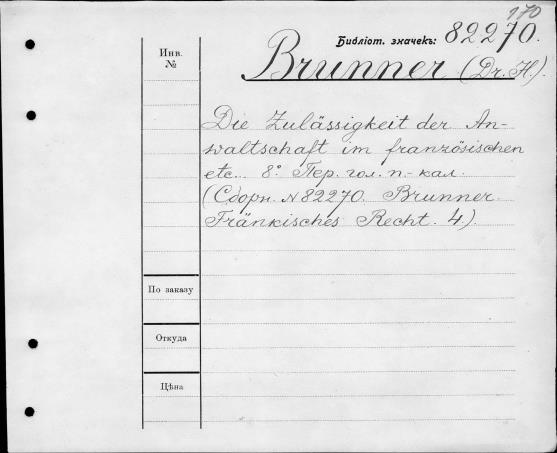 170
Библіот. значекъ: 82270.
Инв.
№
Brunner (Dr. H.).
Die Zulässigkeit der An-
waltschaft im französischen
etc. 8° Пер. гол. п-кал.
(Сборн. № 82270. Brunner.
Fränkisches Recht. 4).
По заказу
Откуда
Цѣна